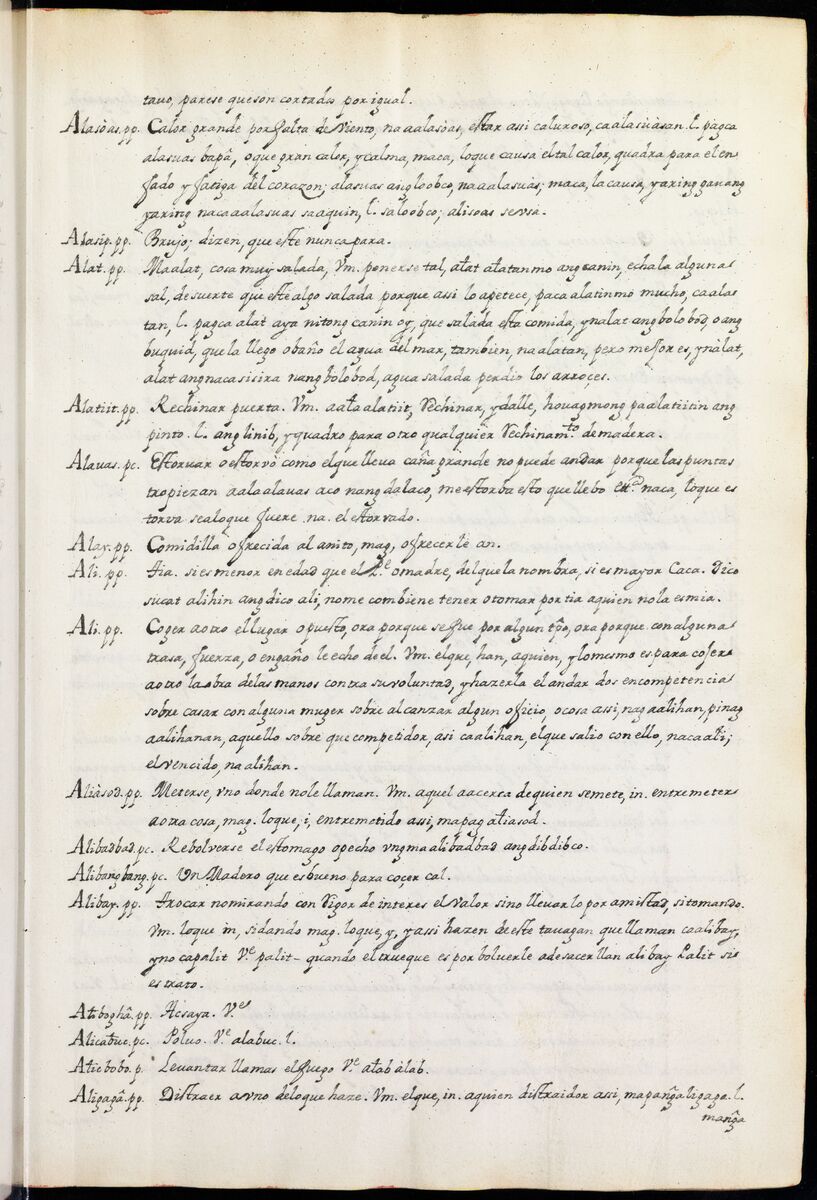 tauo, parese que son cortados por igual.
Alasòas. pp. Calor grande por falta de viento, na aalasòas, estar assi caluroso, ca alasùasan. l. pagca
alasuas bapâ, o que gran calor, y calma, maca, loque causa el tal calor, quadra para el en=
fado y fatiga del corazon; alasuas ang loobco, na aalasuàs; maca, la causa, yaring gauang
yaring nacaaalasuas sa aquin, l. sa loobco; alisòas se vsa.
Alasip. pp. Brujo; dizen, que este nunca para.
Alat. pp. Maalat, cosa muy salada, Vm. ponerse tal, alat alatanmo ang canin, echala alguna
sal, de suerte que este algo salada porque assi lo apetece, paca alatinmo mucho, ca ala=
tan, l. pagca alat aya nitong canin oy, que salada esta comida, ynalat ang bolobod, o ang
buquid, que la llego o baño el agua del mar, tambien, na alatan, pero mejor es, ynàlat,
alat ang nacasisira nang bolobod, agua salada perdio los arroces.
Alatiit. pp. Rechinar puerta. Vm. aalaalatiit, Rechinar, y dalle, houag mong paalatiitin ang
pinto. l. ang linib, y quadro para otro qualquier Rechinam.to de madera.
Alauas. pc. Estoruar o estorvo como el que lleva caña grande no puede andar porque las puntas
tropiezan aalaalauas aco nang dalaco, me estorba esto que llebo naca, loque es
torva sea loque fuere na. el estorvado.
Alay. pp. Comidilla ofrecida al anito, mag, ofrecerle an.
Ali. pp. tia. si es menor en edad que el P.e o madre, del que la nombra, si es mayor Caca. Dico
sucat alihin ang dico ali, no me combiene tener o tomar por tia a quien no la es mia.
Ali. pp. Coger a otro el lugar o puesto, ora porque se fue por algun tpo, ora porque con alguna
trasa, fuerza, o engaño le echo de el. Vm. el que, han, a quien, y lo mesmo es para cojer
a otro la obra de las manos contra su voluntad, y hazerla el andar dos en competencia
sobre casar con alguna muger sobre alcanzar algun oficio, o cosa assi, nag aalihan, pinag
aalihanan, aquello sobre que competidor, asi caalihan, el que salio con ello, nacaali;
el vencido, na alihan.
Aliàsod. pp. Meterse, vno donde no le llaman. Vm. aquel a acerca de quien se mete, in. entremeter
a otra cosa, mag. loque, i, entremetido assi, mapag aliasod.
Alibadbad. pc. Rebolverse el estomago o pecho vng ma alibadbad ang dibdibco.
Alibangbang. pc. Un Madero que es bueno para coçer cal.
Alibay. pp. trocar no mirando con Rigor de interes el valor sino llevarlo por amistad, si tomando.
Vm. loque in, si dando mag. loque, y, y assi hazen de este tauagan que llaman caalibay,
y no capalit V.e palit– quando el trueque es por boluerle a desacer llan alibay Palit si
es trato.
Aliboghâ. pp. Acsaya. V.e
Alicabuc. pc. Poluo. V.e alabuc. l.
Alicbobo. p. Levantar llamas el fuego V.e alab àlab.
Aligagâ. pp. Distraer a vno de loque haze. Vm. el que, in. a quien distraidor assi, mapanga ligaga. l.
manga